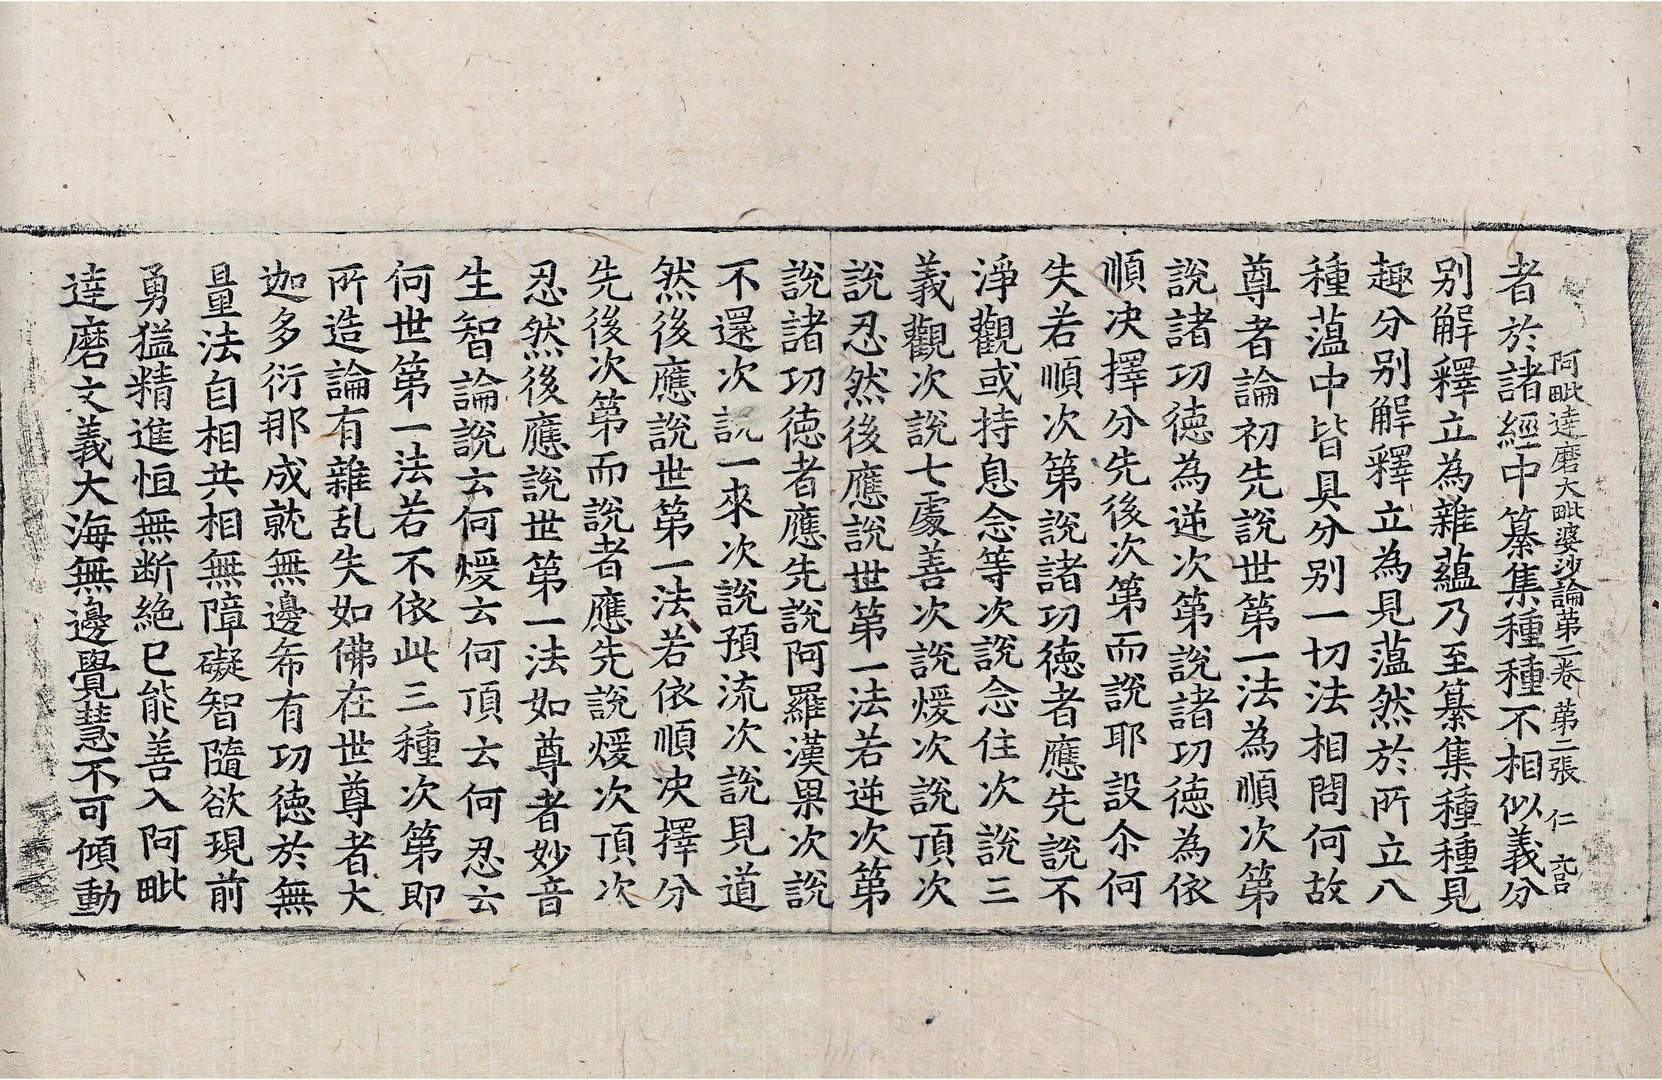 阿毗達磨大毗婆沙論第二卷 第二張 仁
者於諸經中纂集種種不相似義分
別解釋立為雜蘊乃至纂集種種見
趣分別解釋立為見薀然於所立八
種薀中皆具分別一切法相問何故
尊者論初先說世第一法為順次第
說諸功德為逆次第說諸功德為依
順決擇分先後次第而說耶設尒何
失若順次第說諸功德者應先說不
淨觀或持息念等次說念住次說三
義觀次說七處善次說煖次說頂次
說忍然後應說世第一法若逆次第
說諸功德者應先說阿羅漢果次說
不還次說一來次說預流次說見道
然後應說世第一法若依順決擇分
先後次第而說者應先說煖次頂次
忍然後應說世第一法如尊者妙音
生智論說云何煖云何頂云何忍云
何世第一法若不依此三種次第即
所造論有雜乱失如佛在世尊者大
迦多衍那成就無邊希有功德於無
量法自相共相無障礙智隨欲現前
勇猛精進恒無断絕已能善入阿毗
達磨文義大海無邊覺慧不可傾動